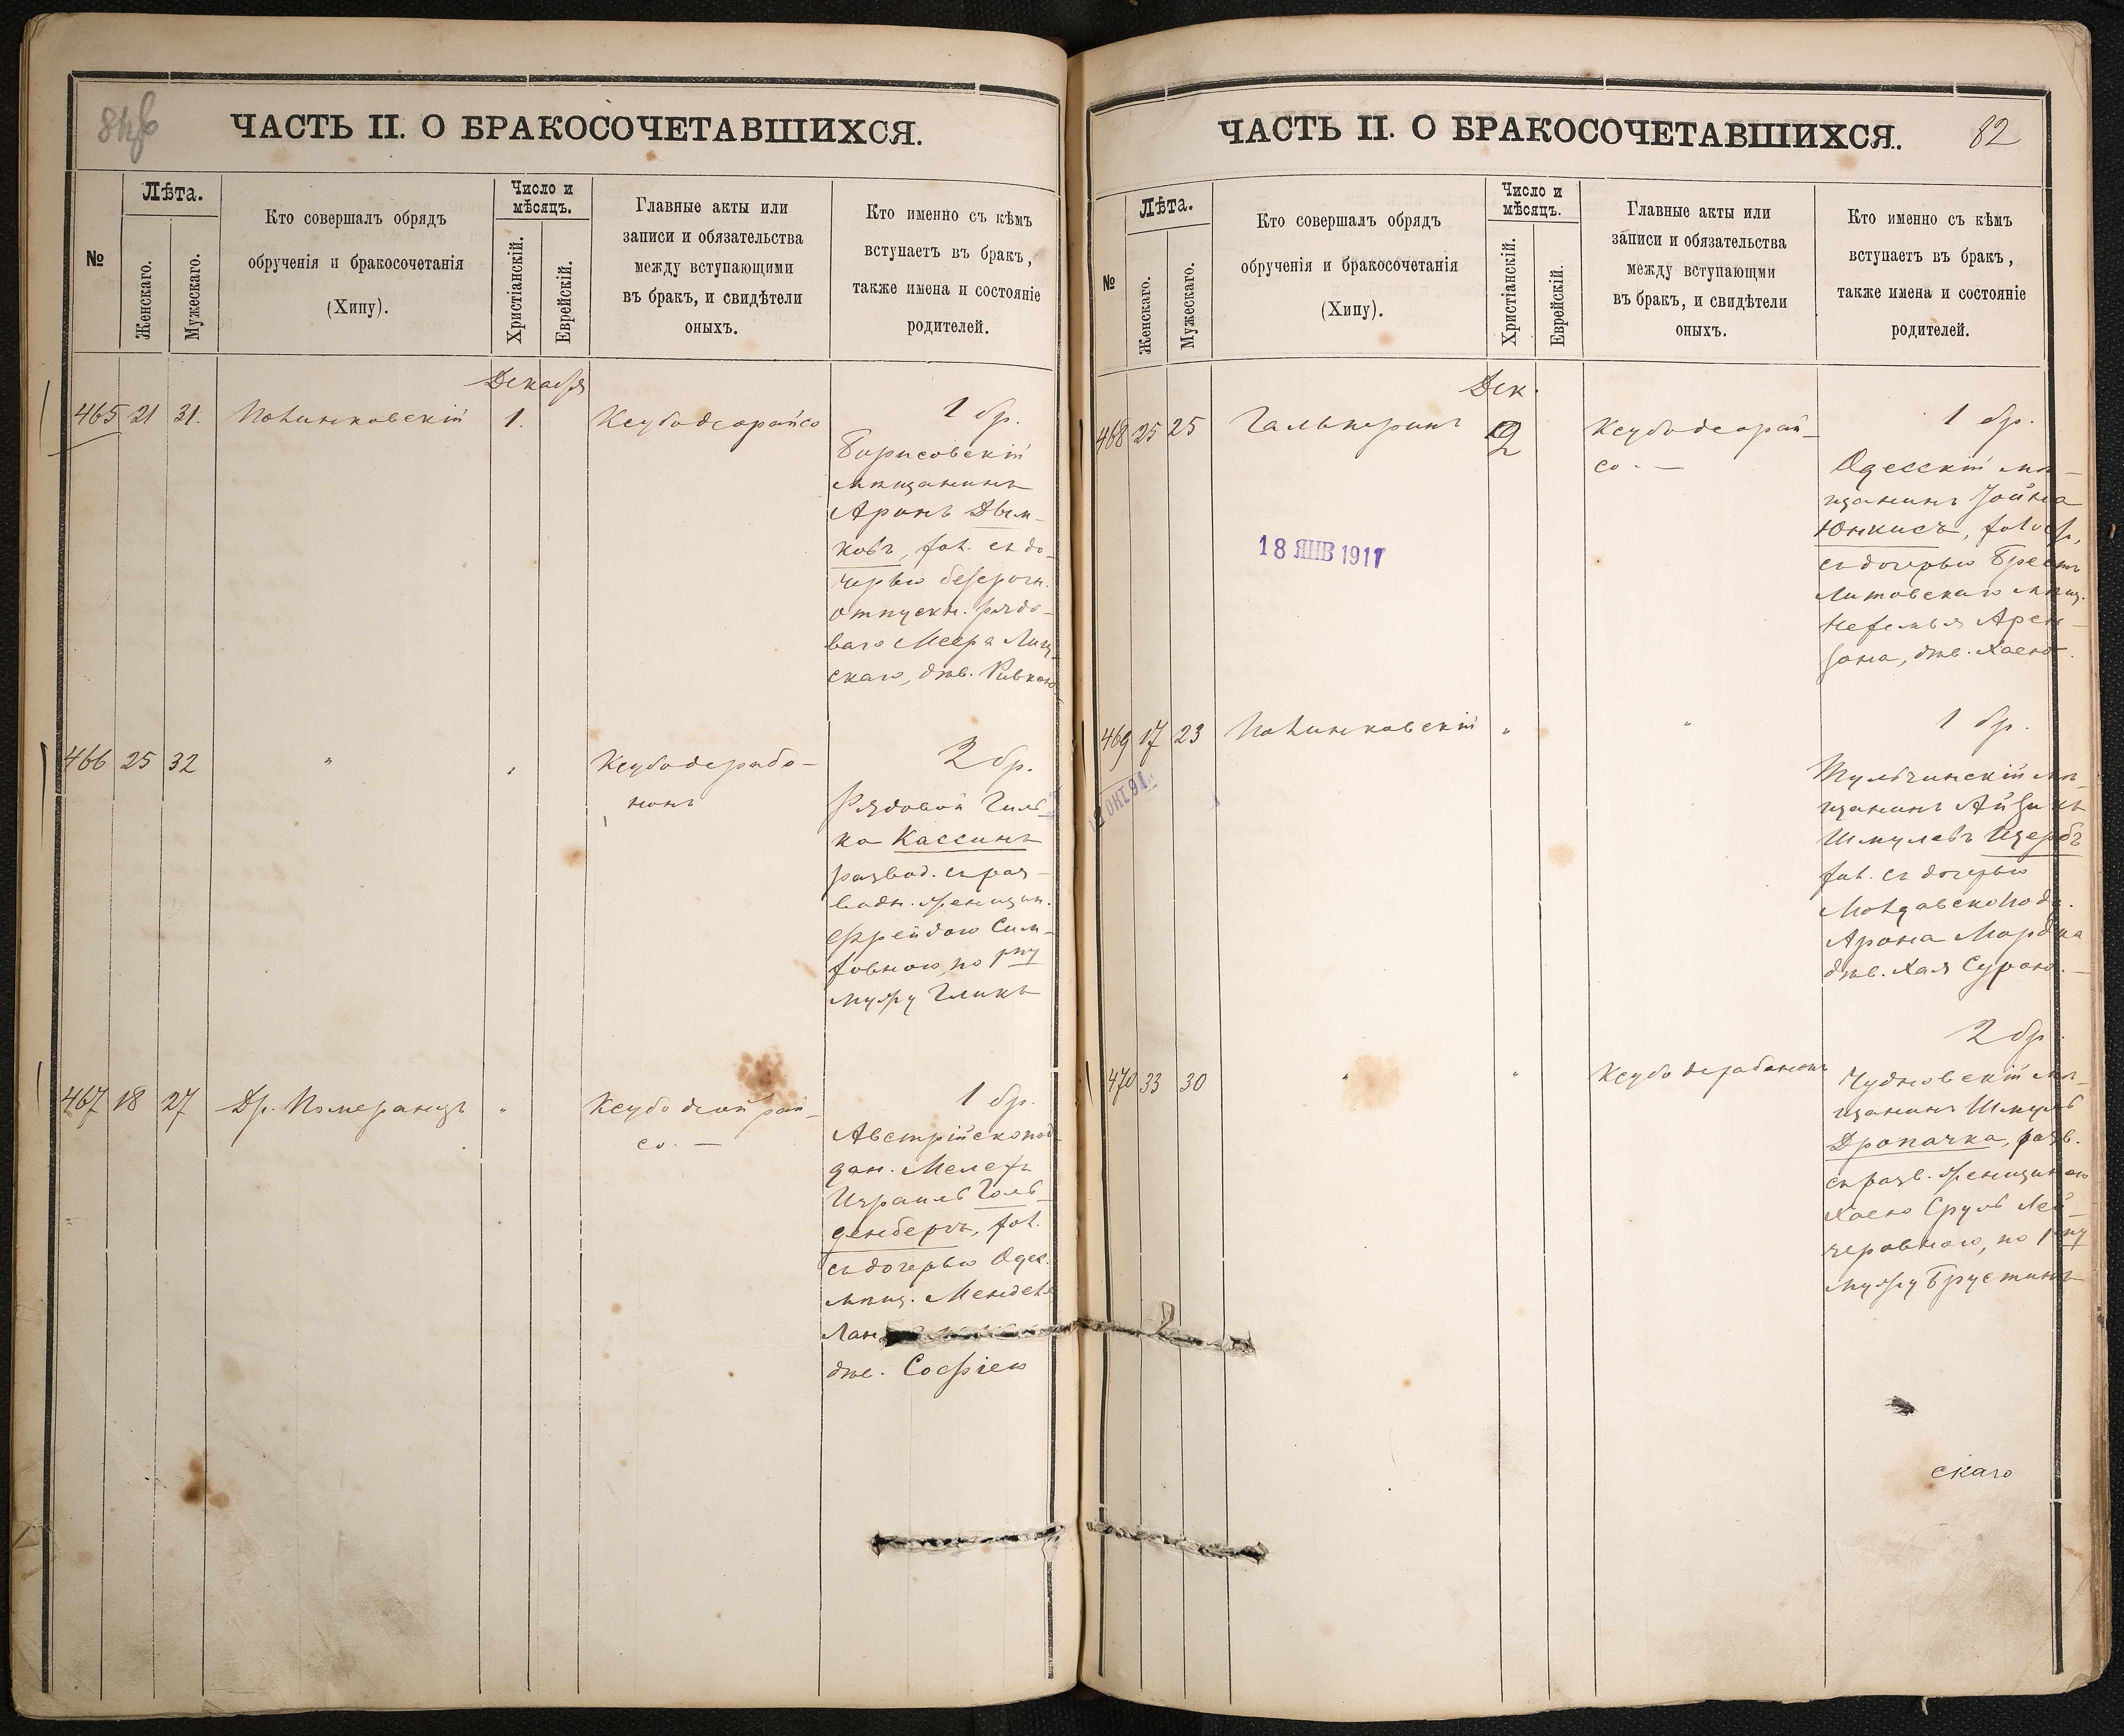 ЧАСТЬ II. О БРАКОСОЧЕТАВШИХСЯ.
№
Лѣта.
Женскаго.
Мужескаго.
Кто совершалъ обрядъ
обрученія и бракосочетанія
(Хипу).
Число и
мѣсяцъ.
Христіанскій.
Еврейскій.
Главные акты или
записи и обязательства
между вступающими
въ бракъ, и свидѣтели
оныхъ.
Кто именно съ кѣмъ
вступаетъ въ бракъ,
также имена и состояніе
родителей.
Декабря
465 21 31. Полинковскій 1. Ксубодеорайсо
1 бр.
Борисовскій
мѣщанинъ
Аронъ Дым-
ковъ, хол. съ до-
черью безсрочн.
отпускн. рядо-
ваго Меера Лип
скаго, дѣв. Ривкою
466 25 32 " " Ксубодерабо-
нонъ
2 бр.
Рядовой Гиль-
ко Кассинъ
развод. съ раз-
водн. женщин.
Фрейдою Сим-
ховною, по 1му
мужу Гликъ
467 18 27 Др. Померанцъ " Ксубо деой рай-
со. —
1 бр.
Австрійскопод
дан. Мелехъ
Израиль Голь-
денбергъ, хол.
съ дочерью Одес.
мѣщ. Менделя
Лан
дѣв. Софіею
ЧАСТЬ II. О БРАКОСОЧЕТАВШИХСЯ.
82
№
Лѣта.
Женскаго.
Мужескаго.
Кто совершалъ обрядъ
обрученія и бракосочетанія
(Хипу).
Число и
мѣсяцъ.
Христіанскій.
Еврейскій.
Главные акты или
записи и обязательства
между вступающми
въ бракъ, и свидѣтели
оныхъ.
Кто именно съ кѣмъ
вступаетъ въ бракъ,
также имена и состояніе
родителей.
Дек.
468 25 25 Гальперинъ 2 Ксубодеорай-
со. —
1 бр.
Одесскій мѣ-
щанинъ Іойна
Юнкисъ, холост,
съ дочерью Брестъ
Литовскаго мѣщ.
Нехемья Арен-
зона, дѣв. Хаею.
18 ЯНВ 1911
469 17 23 Полинковскій " "
1 бр.
Тульчинскій мѣ-
щанинъ Айзикъ
Шмулевъ Щербъ
хол. съ дочерью
Молдавскопод.
Арона Мордка
дѣв. Хая Сурою. —
470 33 30 " " Ксубо дерабанонъ
2 бр.
Чудновскій мѣ-
щанинъ Шмуль
Дропачка, разв.
съ разв. женщиною
Хаею Сруль Лей-
зеровною, по 1му
мужу Брустинъ
скаго